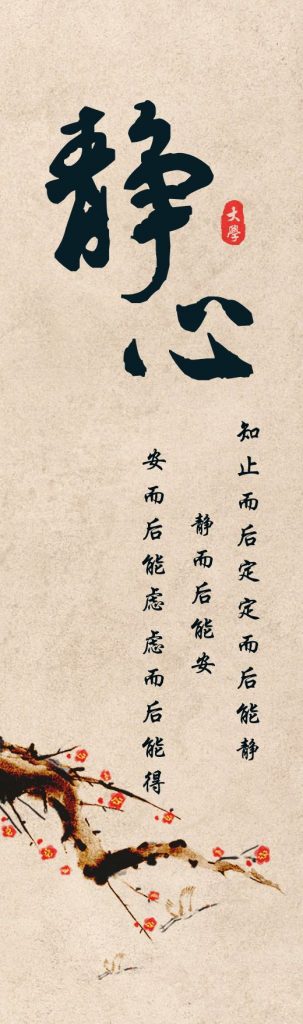 静心
大學
知止而后定定而后能静
静而后能安
安而后能虑虑而后能得